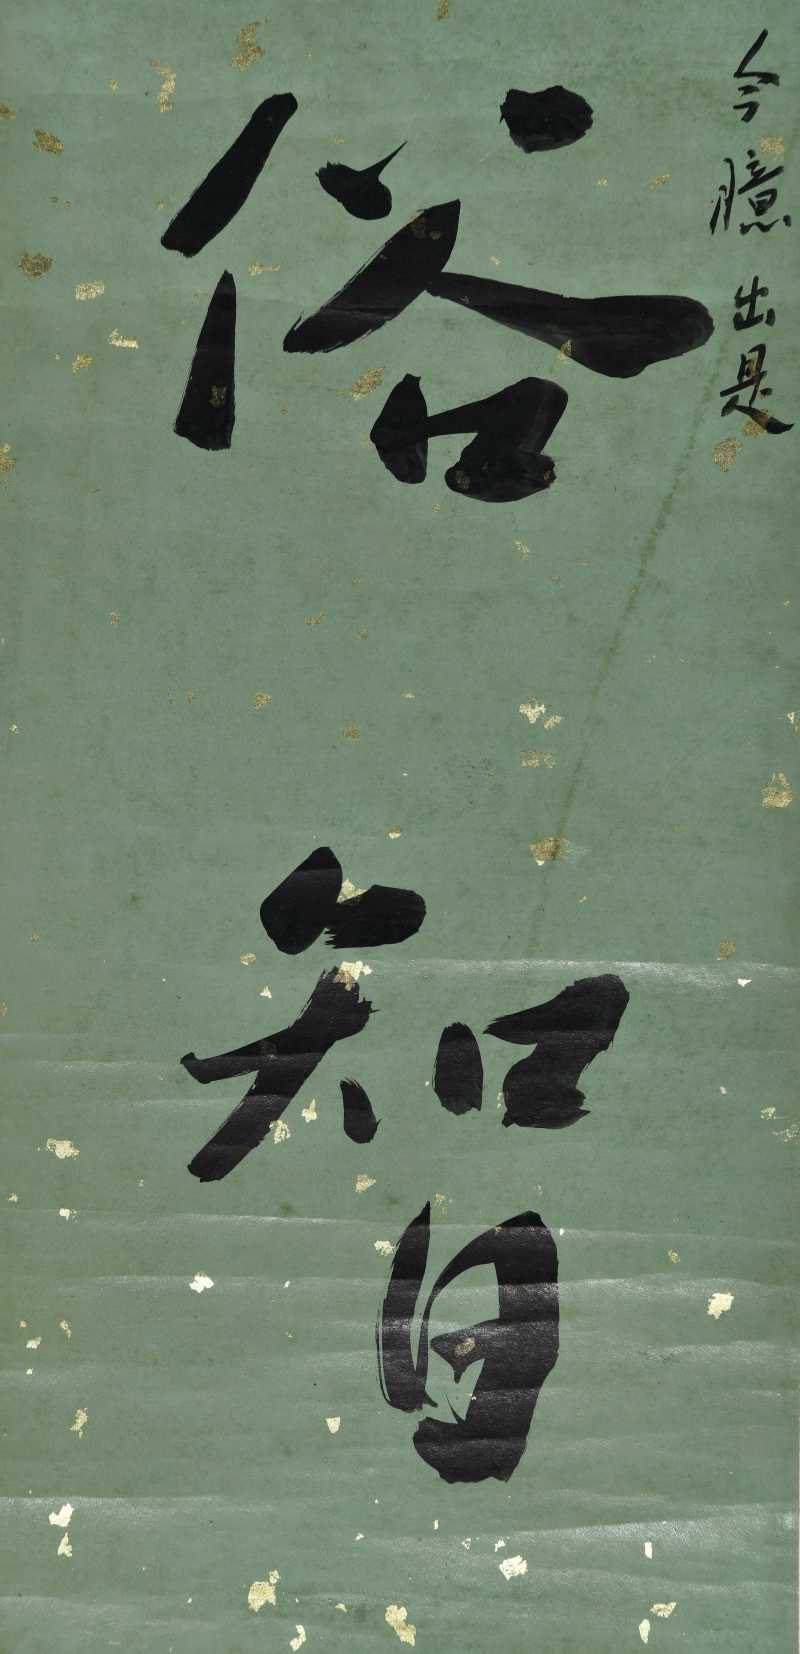 今臆出是
俗智